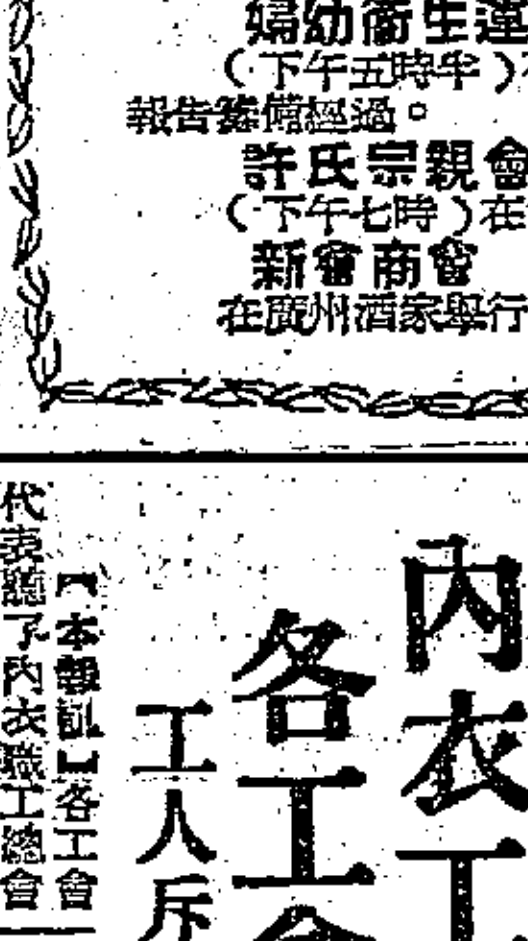 婦幼衞生運
（下午五時半）在
報告籌備經過。
許氏宗親會
（下午七時）在
新會商會
在廣州酒家舉行
內衣工
各工會
工人斥
【本報訊】各工會
代表聽了內衣職工總會